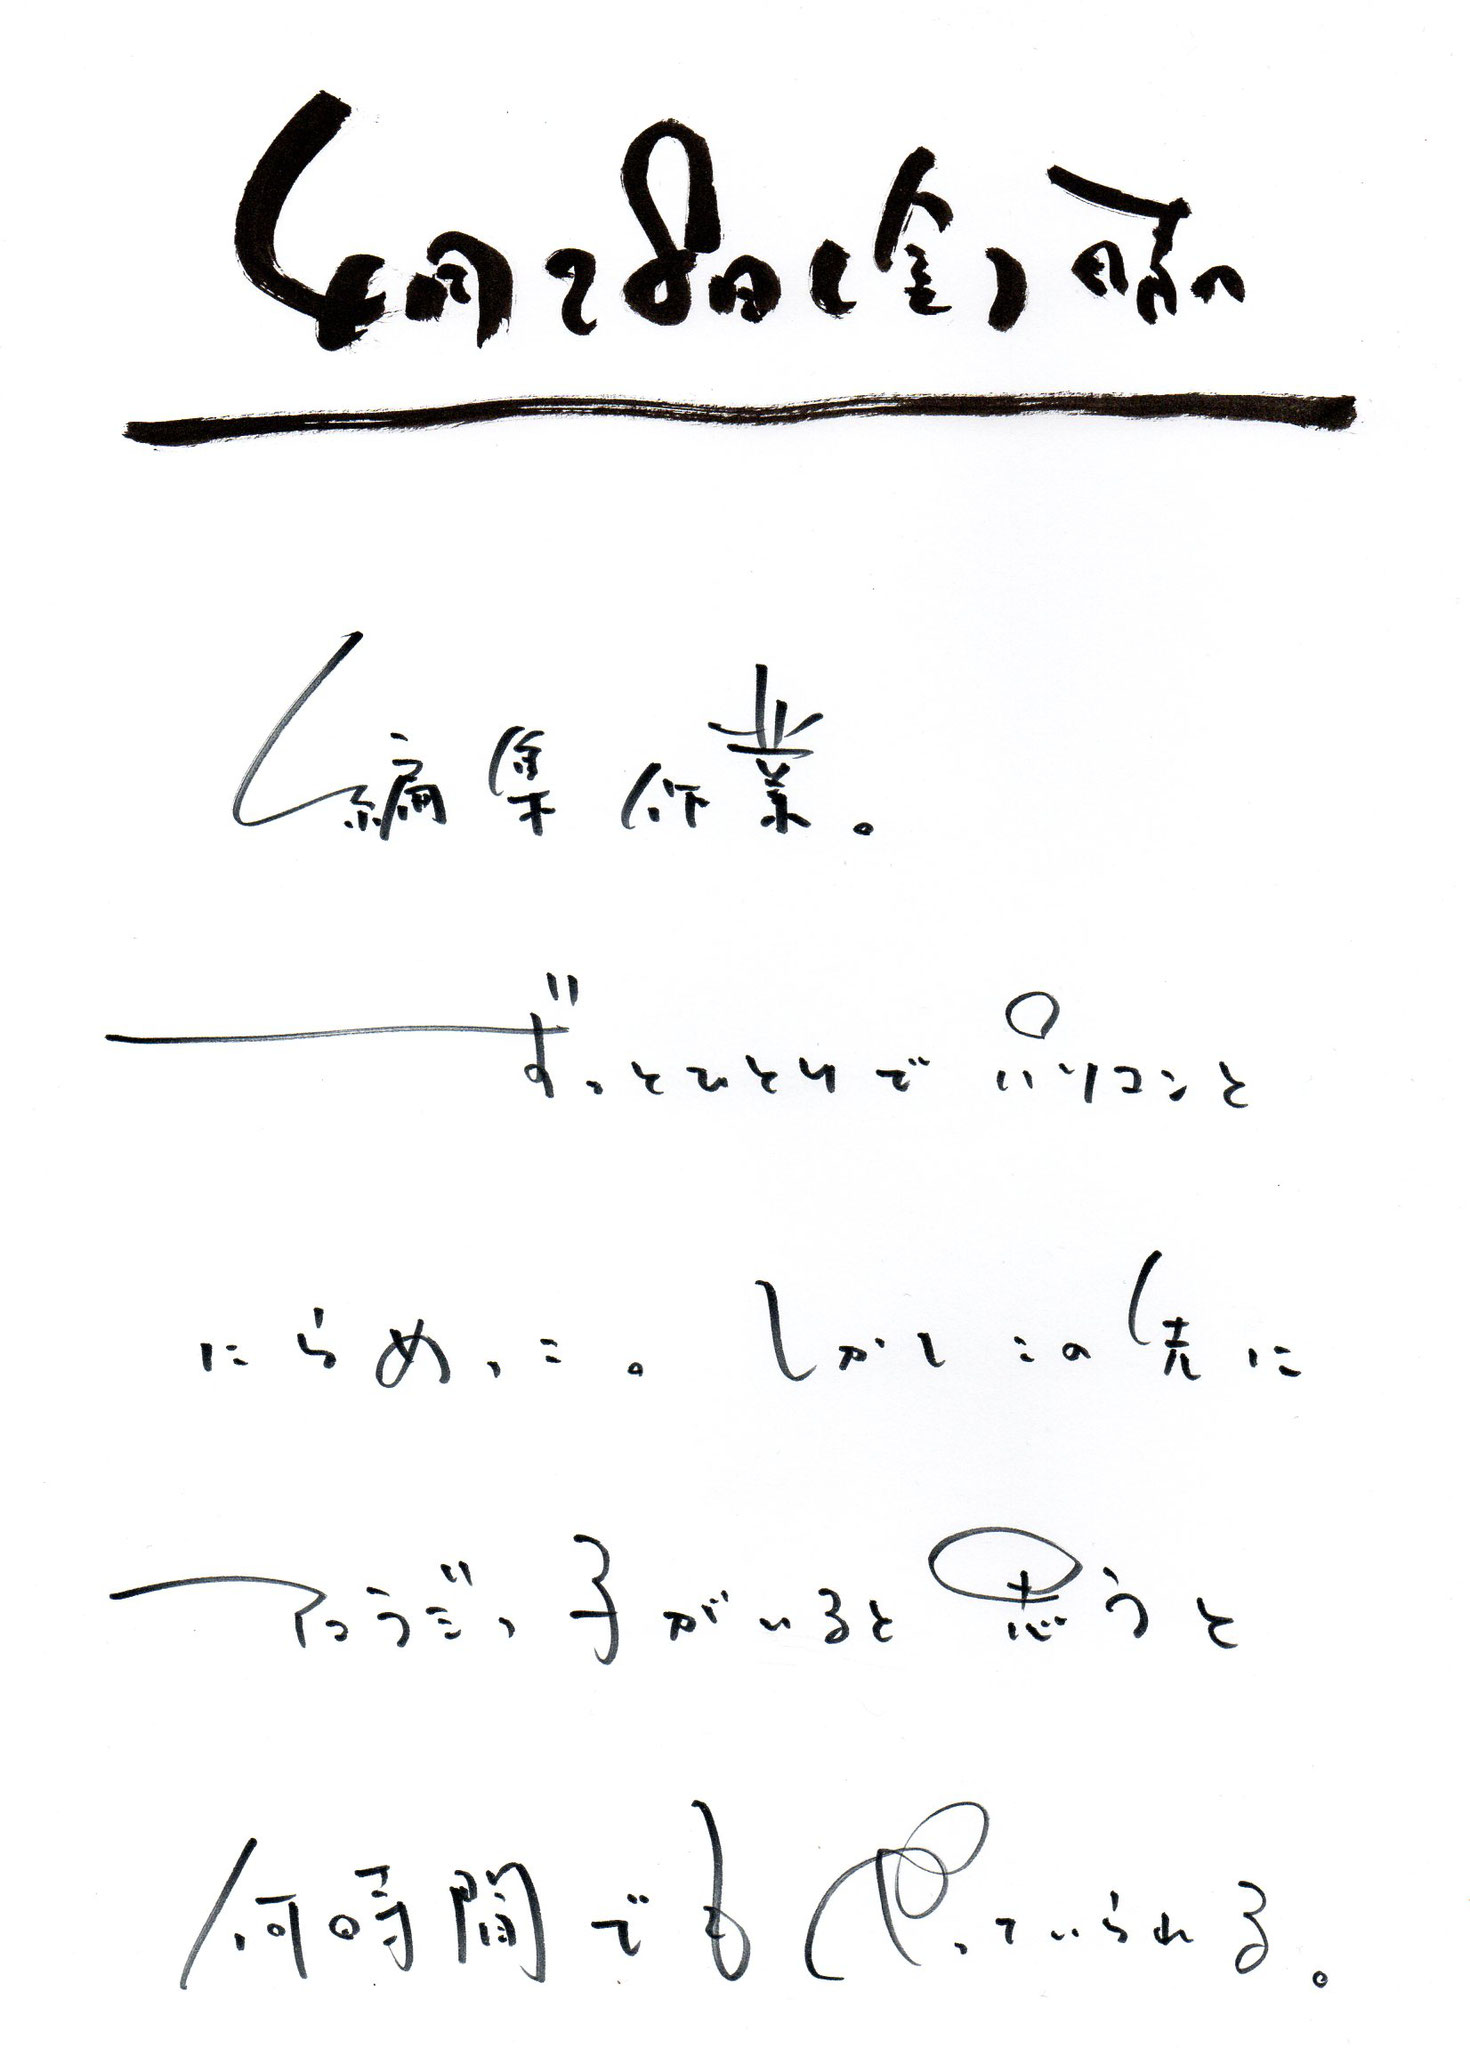 6月28日(金)晴れ
編集作業。
ずっとひとりでパソコンと
にらめっこ。しかしこの先に
子がいると思うと
何時間でもやっていられる。